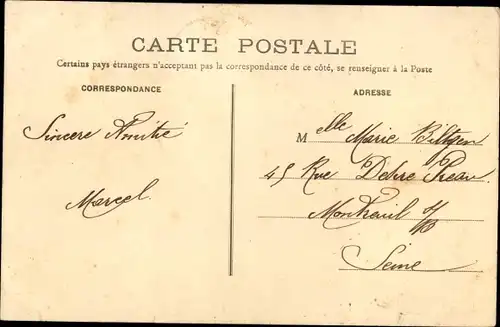 CARTE POSTALE
Certains pays étrangers n'acceptant pas la correspondance de ce côté, se renseigner à la Poste
CORRESPONDANCE
Sincere Amitié
Marcel
ADRESSE
Melle Marie Biltgen
45 Rue Debre Preau
Montreuil s/B
Seine